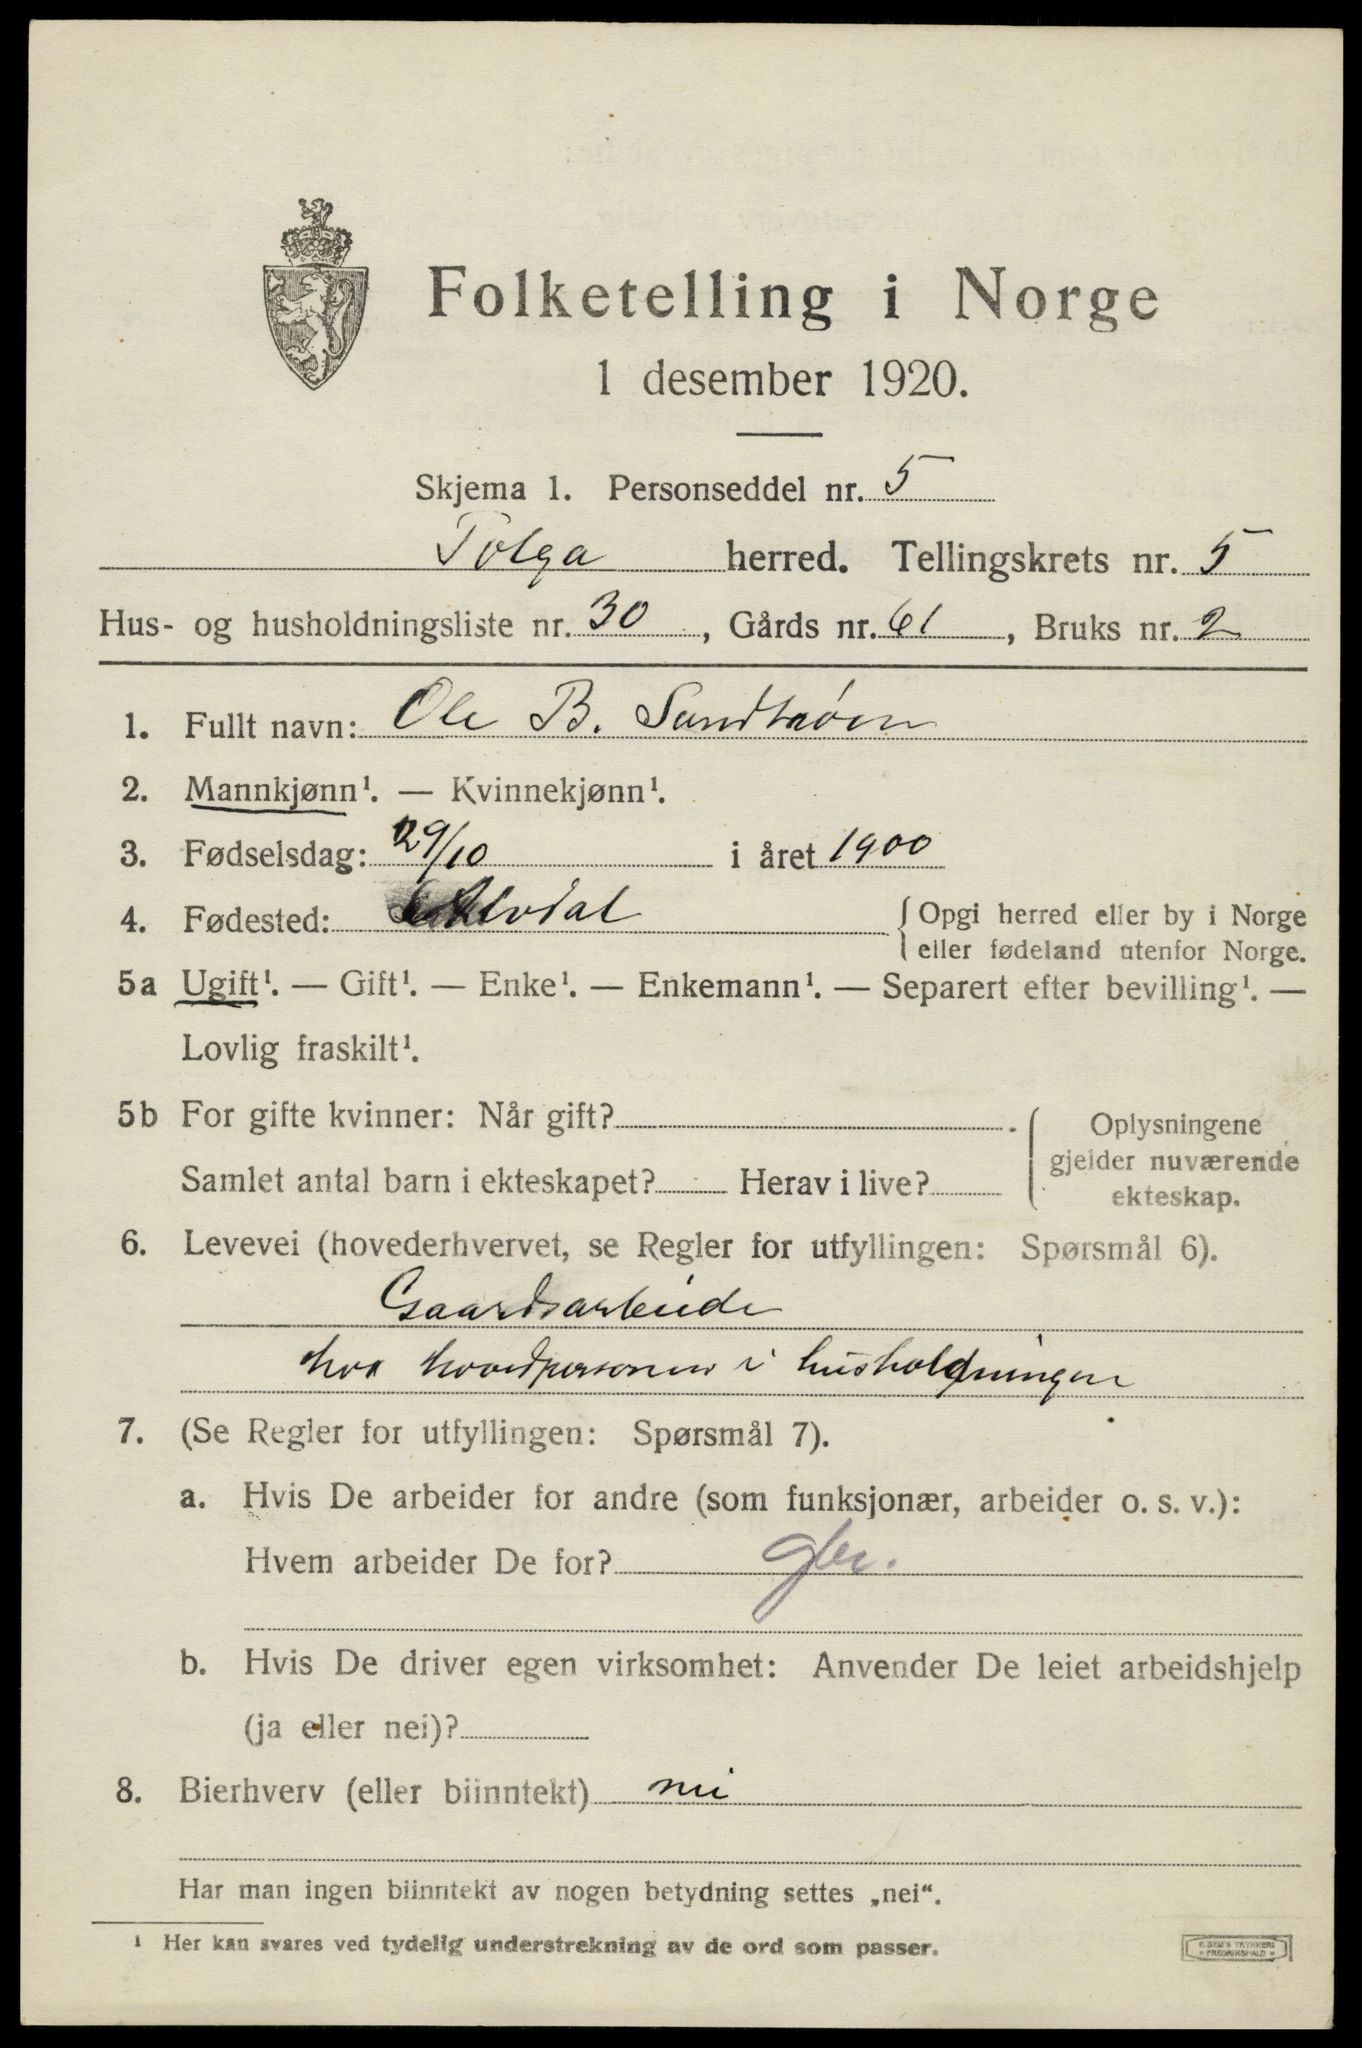 Folketelling i Norge
1 desember 1920.
Skjema 1. Personseddel nr. 5
Tolga herred. Tellingskrets nr. 5
Hus- og husholdningsliste nr. 30, Gårds nr. 61, Bruks nr. 2
1. Fullt navn: Ole B. Sandtrøen
2. Mannkjønn¹. — Kvinnekjønn¹.
3. Fødselsdag: 29/10 i året 1900
4. Fødested: Alvdal {Opgi herred eller by i Norge
eller fødeland utenfor Norge.
5a Ugift¹. — Gift¹. — Enke¹. — Enkemann¹. — Separert efter bevilling¹. —
Lovlig fraskilt¹.
5b For gifte kvinner: Når gift?
Samlet antal barn i ekteskapet? Herav i live?
Oplysningene
gjelder nuværende
ekteskap.
6. Levevei (hovederhvervet, se Regler for utfyllingen: Spørsmål 6).
Gaardsarbeide
hos hovedpersonen i husholdningen
7. (Se Regler for utfyllingen: Spørsmål 7).
a. Hvis De arbeider for andre (som funksjonær, arbeider o. s. v.):
Hvem arbeider De for? gbr.
b. Hvis De driver egen virksomhet: Anvender De leiet arbeidshjelp
(ja eller nei)?
8. Bierhverv (eller biinntekt) nei
Har man ingen biinntekt av nogen betydning settes „nei“.
¹ Her kan svares ved tydelig understrekning av de ord som passer.
E. SEM'S TRYKKERI
FREDRIKSHALD